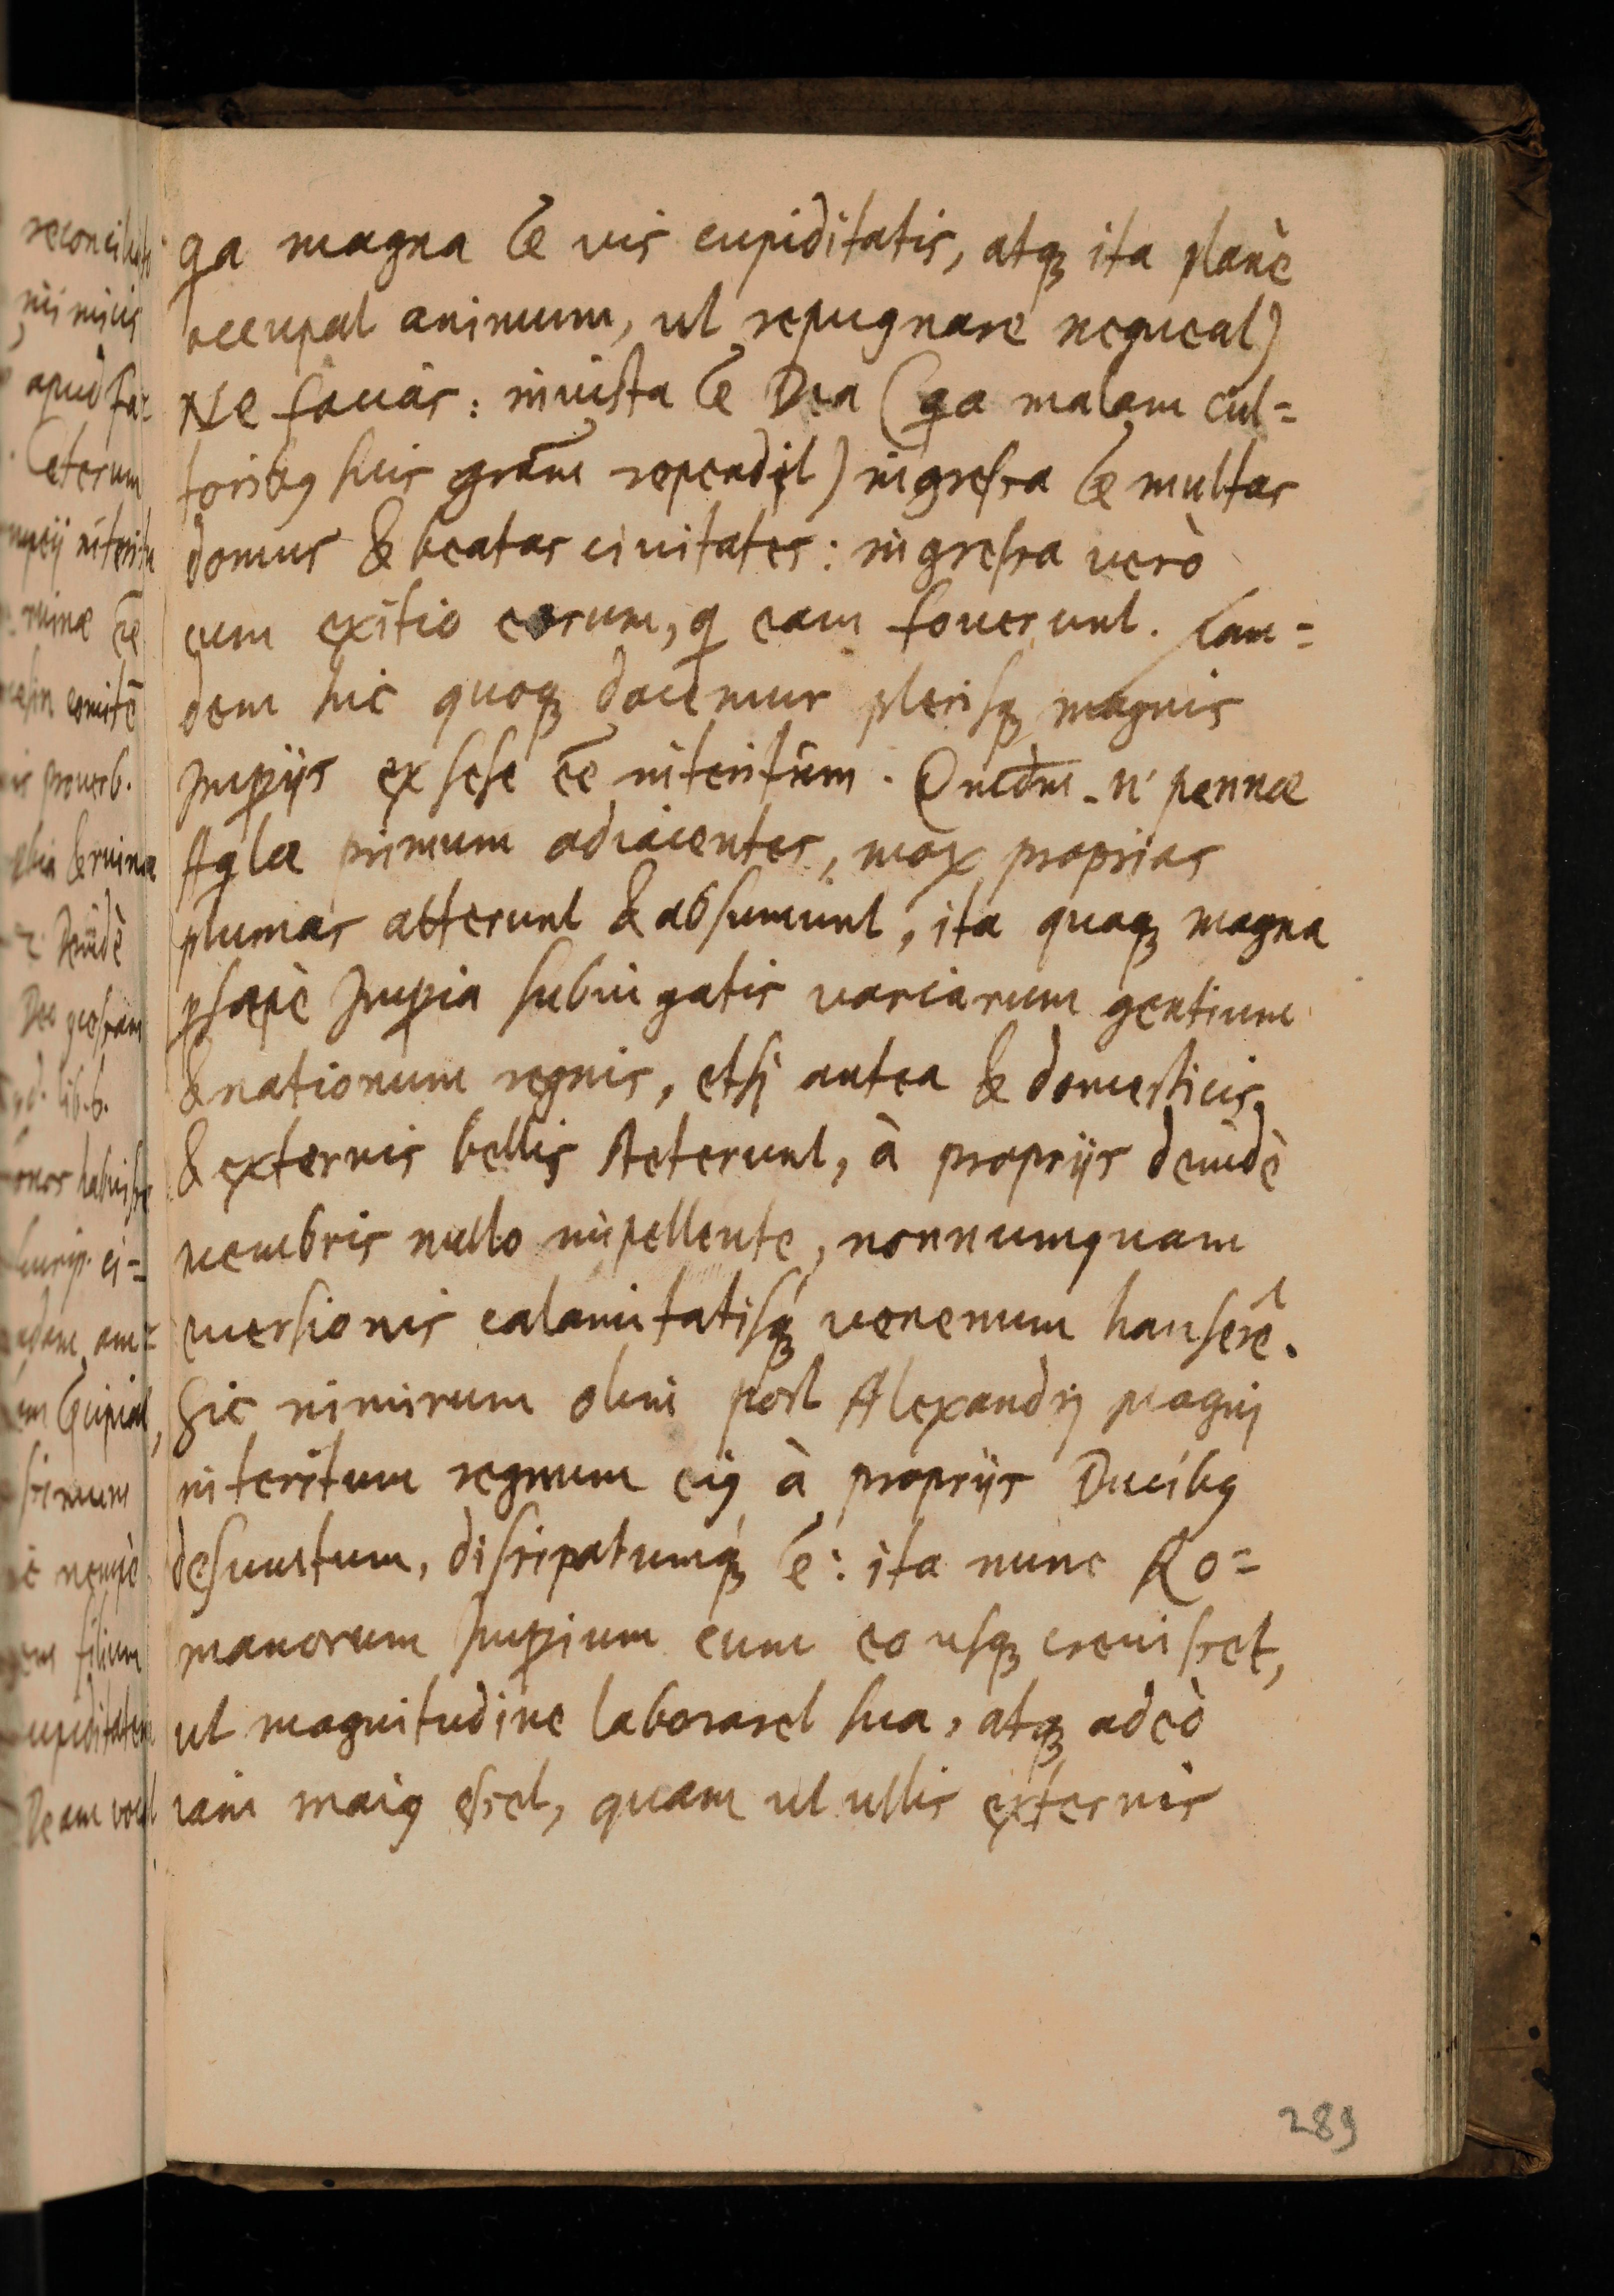 reconcilia
qa magna ē vis cupiditatis, atq; ita planè
occupat animum, ut repugnare nequeat)
Ne favár: iniusta ē Dea (qa malam cul=
toribq suis grām rependit) ingressa ē multas
domus & beatas civitates: ingressa verò
cum exitio eorum, q eam foverunt. Tan=
dem hic quoq; docemur plerisq; magnis
Impijs ex sese ēe interitum. Quēdm. n' pennæ
Aqlæ primum adiacentes, mox proprias
plumas atterunt & absumunt, ita quoq; magna
psæpè Impia subiugatis variarum gentium
& nationum regnis, etsi antea & domesticis
& externis bellis steterunt, à proprijs deindè
membris nullo impellente, nonnumquam
eversionis calamitatisq; venenum hauserē.
Sic nimirum olim post Alexandri magni
interitum regnum eiq à proprijs Ducibq
desumtum, dissipatumq; ē: ita nunc Ro=
manorum Impium cum eo usq; crevisset,
ut magnitudine laboraret sua, atq; adeò
iam maiq esset, quam ut ullis externis
289